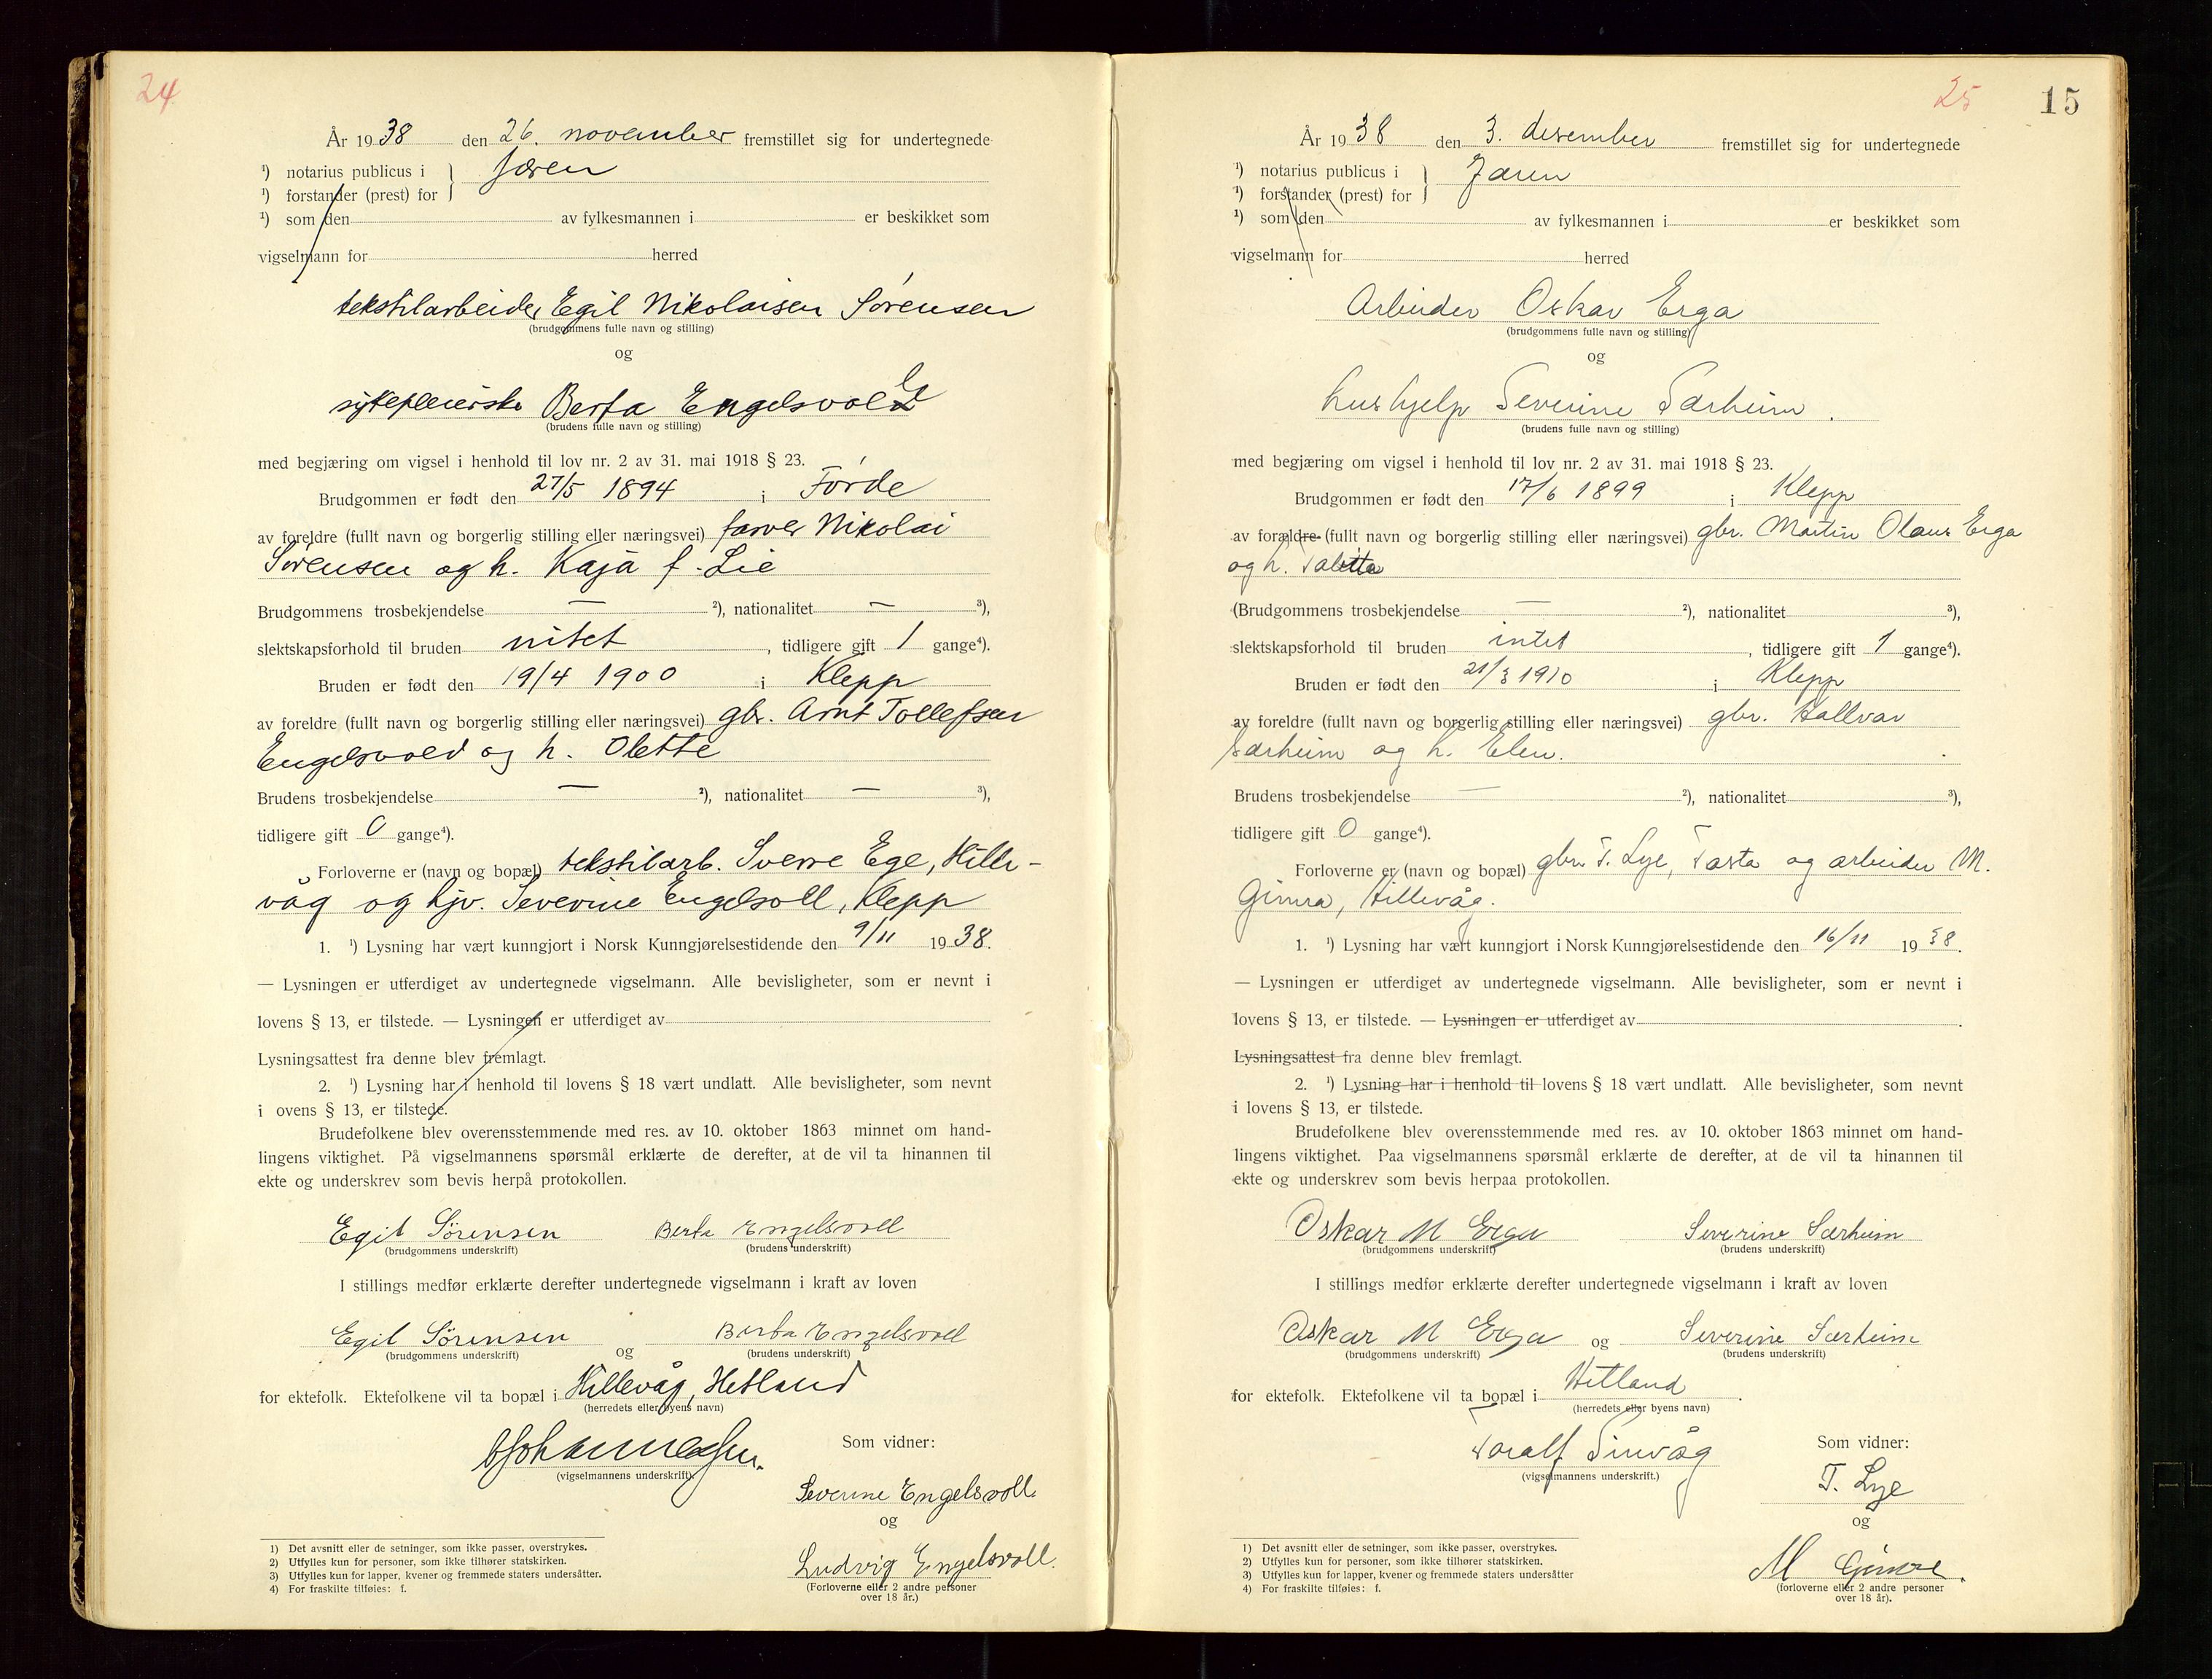 24
År 1938 den 26. november fremstillet sig for undertegnede
¹) notarius publicus i } Jæren
¹) forstander (prest) for
¹) som den av fylkesmannen i er beskikket som
vigselmann for herred
tekstilarbeider Egil Nikolaisen Sørensen
(brudgommens fulle navn og stilling)
og
sykepleierske Berta Engelsvoll
(brudens fulle navn og stilling)
med begjæring om vigsel i henhold til lov nr. 2 av 31. mai 1918 § 23.
Brudgommen er født den 27/5 1894 i Førde
av foreldre (fullt navn og borgerlig stilling eller næringsvei) farver Nikolai
Sørensen og h. Kaja f. Lie
Brudgommens trosbekjendelse — ²), nationalitet — ³),
slektskapsforhold til bruden intet, tidligere gift 1 gange⁴).
Bruden er født den 19/4 1900 i Klepp
av foreldre (fullt navn og borgerlig stilling eller næringsvei) gbr. Arnt Tollefsen
Engelsvold og h. Olette
Brudens trosbekjendelse — ²), nationalitet — ³),
tidligere gift 0 gange⁴).
Forloverne er (navn og bopæl) tekstilarb. Sverre Ege, Hille-
våg og hjv. Severine Engelsvoll, Klepp
1. ¹) Lysning har vært kunngjort i Norsk Kunngjørelsestidende den 9/11 1938.
— Lysningen er utferdiget av undertegnede vigselmann. Alle bevisligheter, som er nevnt i
lovens § 13, er tilstede. — Lysningen er utferdiget av
Lysningsattest fra denne blev fremlagt.
2. ¹) Lysning har i henhold til lovens § 18 vært undlatt. Alle bevisligheter, som nevnt
i ovens § 13, er tilstede.
Brudefolkene blev overensstemmende med res. av 10. oktober 1863 minnet om hand-
lingens viktighet. På vigselmannens spørsmål erklærte de derefter, at de vil ta hinannen til
ekte og underskrev som bevis herpå protokollen.
Egil Sørensen Berta Engelsvoll
(brudgommens underskrift) (brudens underskrift)
I stillings medfør erklærte derefter undertegnede vigselmann i kraft av loven
Egil Sørensen og Berta Engelsvoll
(brudgommens underskrift) (brudens underskrift)
for ektefolk. Ektefolkene vil ta bopæl i Hillevåg, Hetland
(herredets eller byens navn)
Johannessen.
(vigselmannens underskrift).
Som vidner:
Severine Engelsvoll.
og
Ludvig Engelsvoll.
(Forloverne eller 2 andre personer
over 18 år.)
1) Det avsnitt eller de setninger, som ikke passer, overstrykes.
2) Utfylles kun for personer, som ikke tilhører statskirken.
3) Utfylles kun for lapper, kvener og fremmede staters undersåtter.
4) For fraskilte tilføies: f.
25 15
År 1938 den 3. desember fremstillet sig for undertegnede
¹) notarius publicus i } Jæren
¹) forstander (prest) for
¹) som den av fylkesmannen i er beskikket som
vigselmann for herred
Arbeider Oskar Erga
(brudgommens fulle navn og stilling)
og
hushjelp Severine Særheim.
(brudens fulle navn og stilling)
med begjæring om vigsel i henhold til lov nr. 2 av 31. mai 1918 § 23.
Brudgommen er født den 17/6 1899 i Klepp
av forældre (fullt navn og borgerlig stilling eller næringsvei) gbr. Martin Olaus Erga
og h. Talette
(Brudgommens trosbekjendelse — ²), nationalitet ³),
slektskapsforhold til bruden intet, tidligere gift 1 gange⁴).
Bruden er født den 21/3 1910 i Klepp
av foreldre (fullt navn og borgerlig stilling eller næringsvei) gbr. Hallvar
Særheim og h. Elen.
Brudens trosbekjendelse — ²), nationalitet ³),
tidligere gift 0 gange⁴).
Forloverne er (navn og bopæl) gbr. T. Lye, Tasta og arbeider M.
Gimra, Hillevåg.
1. ¹) Lysning har vært kunngjort i Norsk Kunngjørelsestidende den 16/11 1938.
— Lysningen er utferdiget av undertegnede vigselmann. Alle bevisligheter, som er nevnt i
lovens § 13, er tilstede. — Lysningen er utferdiget av
Lysningsattest fra denne blev fremlagt.
2. ¹) Lysning har i henhold til lovens § 18 vært undlatt. Alle bevisligheter, som nevnt
i lovens § 13, er tilstede.
Brudefolkene blev overensstemmende med res. av 10. oktober 1863 minnet om hand-
lingens viktighet. Paa vigselmannens spørsmål erklærte de derefter, at de vil ta hinannen til
ekte og underskrev som bevis herpaa protokollen.
Oskar M Erga Severine Særheim
(brudgommens underskrift) (brudens underskrift)
I stillings medfør erklærte derefter undertegnede vigselmann i kraft av loven
Oskar M Erga og Severine Særheim
(brudgommens underskrift) (brudens underskrift)
for ektefolk. Ektefolkene vil ta bopæl i Hetland.
(herredets eller byens navn)
Toralf
(vigselmannens underskrift.)
Som vidner:
T. Lye
og
M Gimre.
(forloverne eller 2 andre personer
over 18 år).
1) Det avsnitt eller de setninger, som ikke passer, overstrykes.
2) Utfylles kun for personer, som ikke tilhører statskirken.
3) Utfylles kun for lapper, kvener og fremmede staters undersåtter
4) For fraskilte tilføies: f.